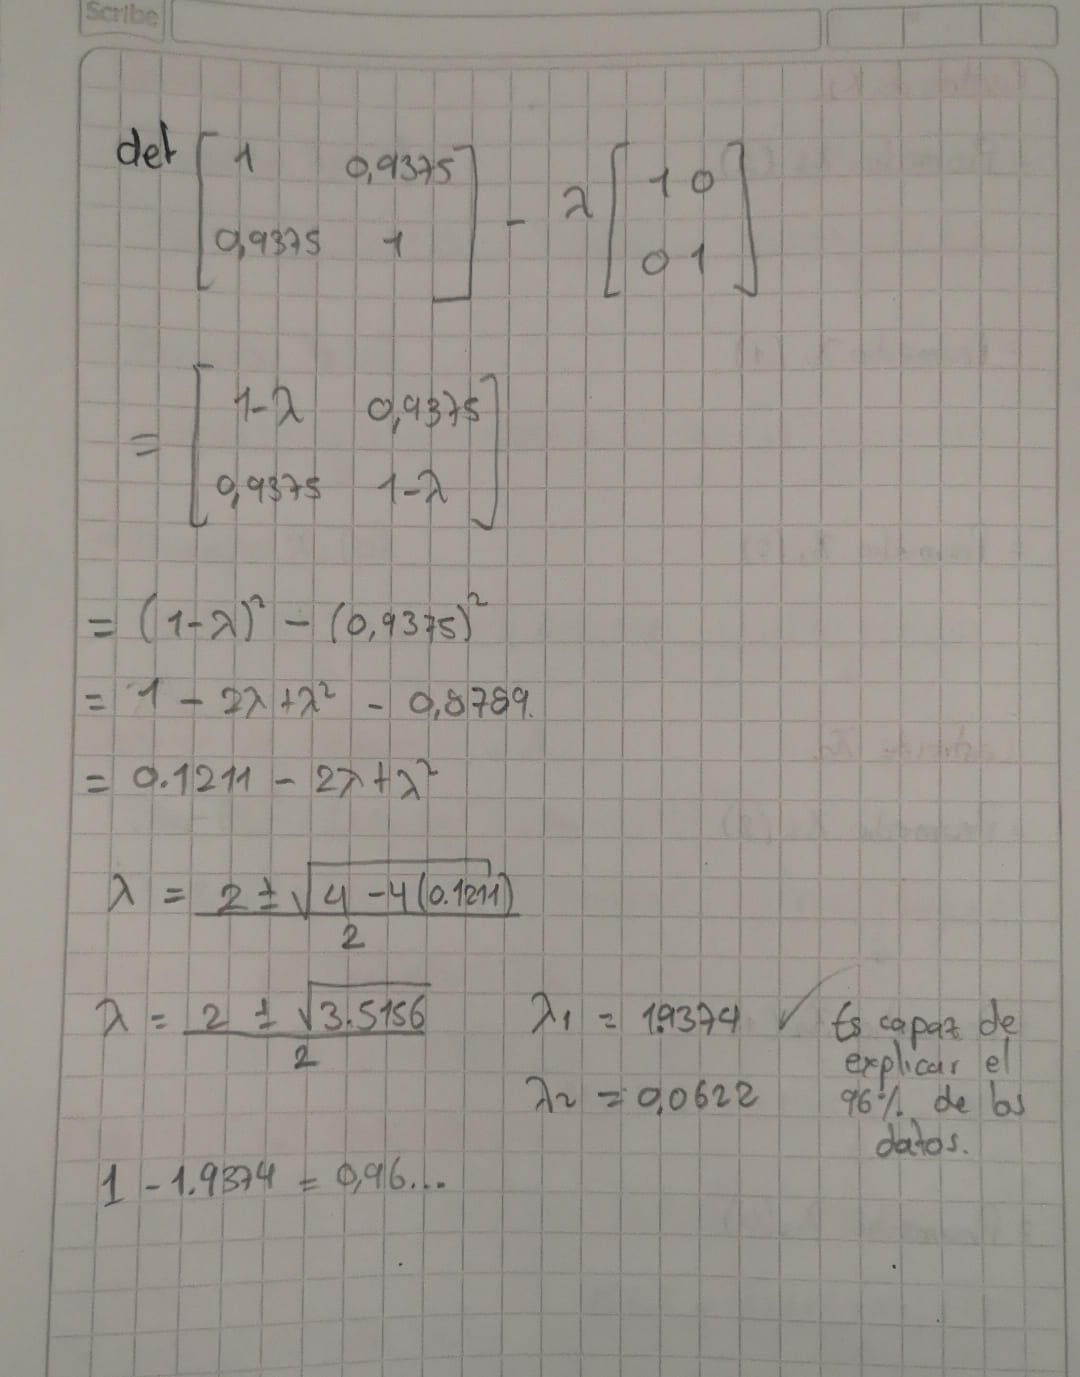 Scribe
det [ 1 0,9375 ] - λ [ 1 0 ]
[ 0,9375 1 ] [ 0 1 ]
= [ 1-λ 0,9375 ]
[ 0,9375 1-λ ]
= (1-λ)² - (0,9375)²
= 1 - 2λ+λ² - 0,8789.
= 0.1211 - 2λ+λ²
λ = 2 ± √4 -4(0.1211)
2
λ = 2 ± √3.5156
2
λ1 = 1.9374 ✓
λ2 = 0,0622
Es capaz de
explicar el
96% de los
datos.
1 - 1.9374 = 0,96...